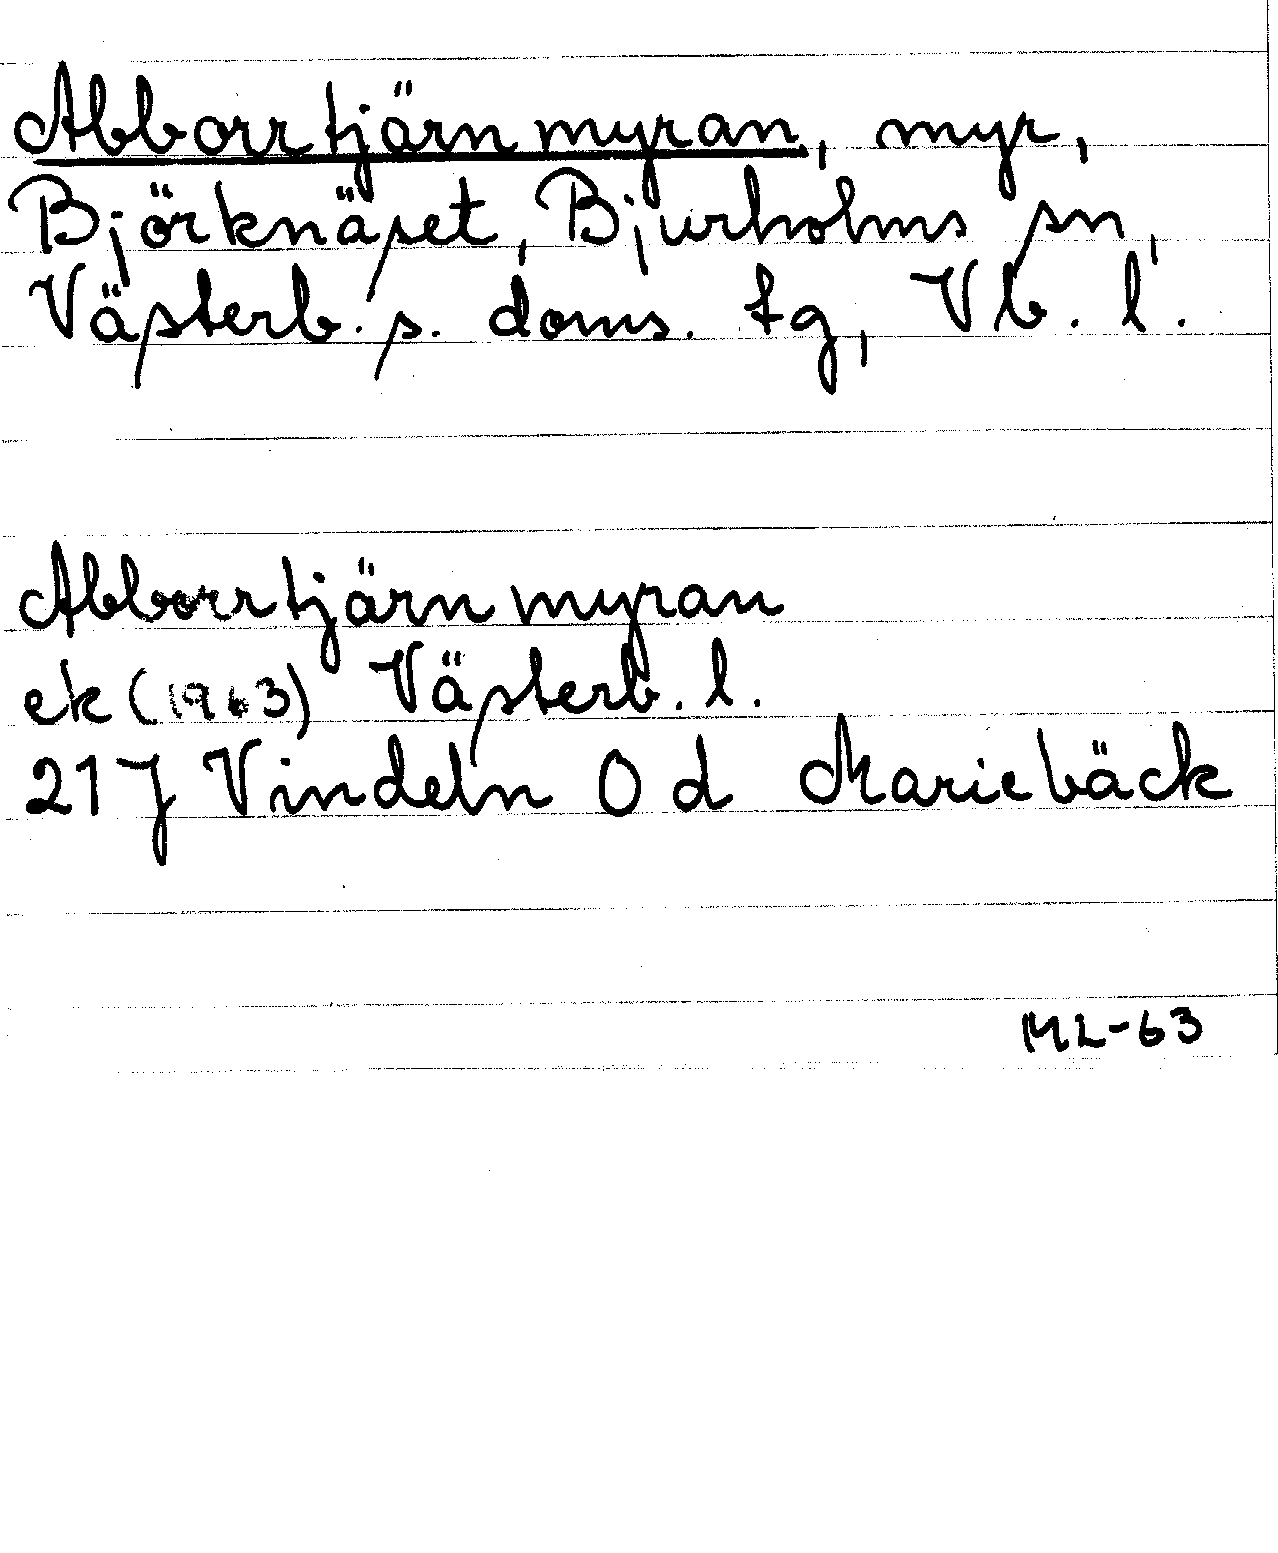 Abborrtjärnmyran, myr,
Björknäset, Bjurholms sn,
Västerb. s. doms. tg, Vb. l.
Abborrtjärnmyran
ek (1963) Västerb. l.
21 J Vindeln 0 d Mariebäck
ML-63